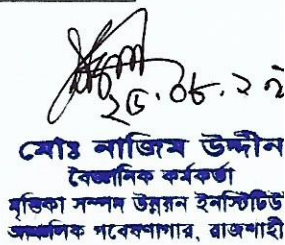 ২৫.০৮.২
মোঃ নাজিম উদ্দীন
বৈজ্ঞানিক কর্মকর্তা
মৃত্তিকা সম্পদ উন্নয়ন ইনস্টিটিউট
আঞ্চলিক গবেষণাগার, রাজশাহী